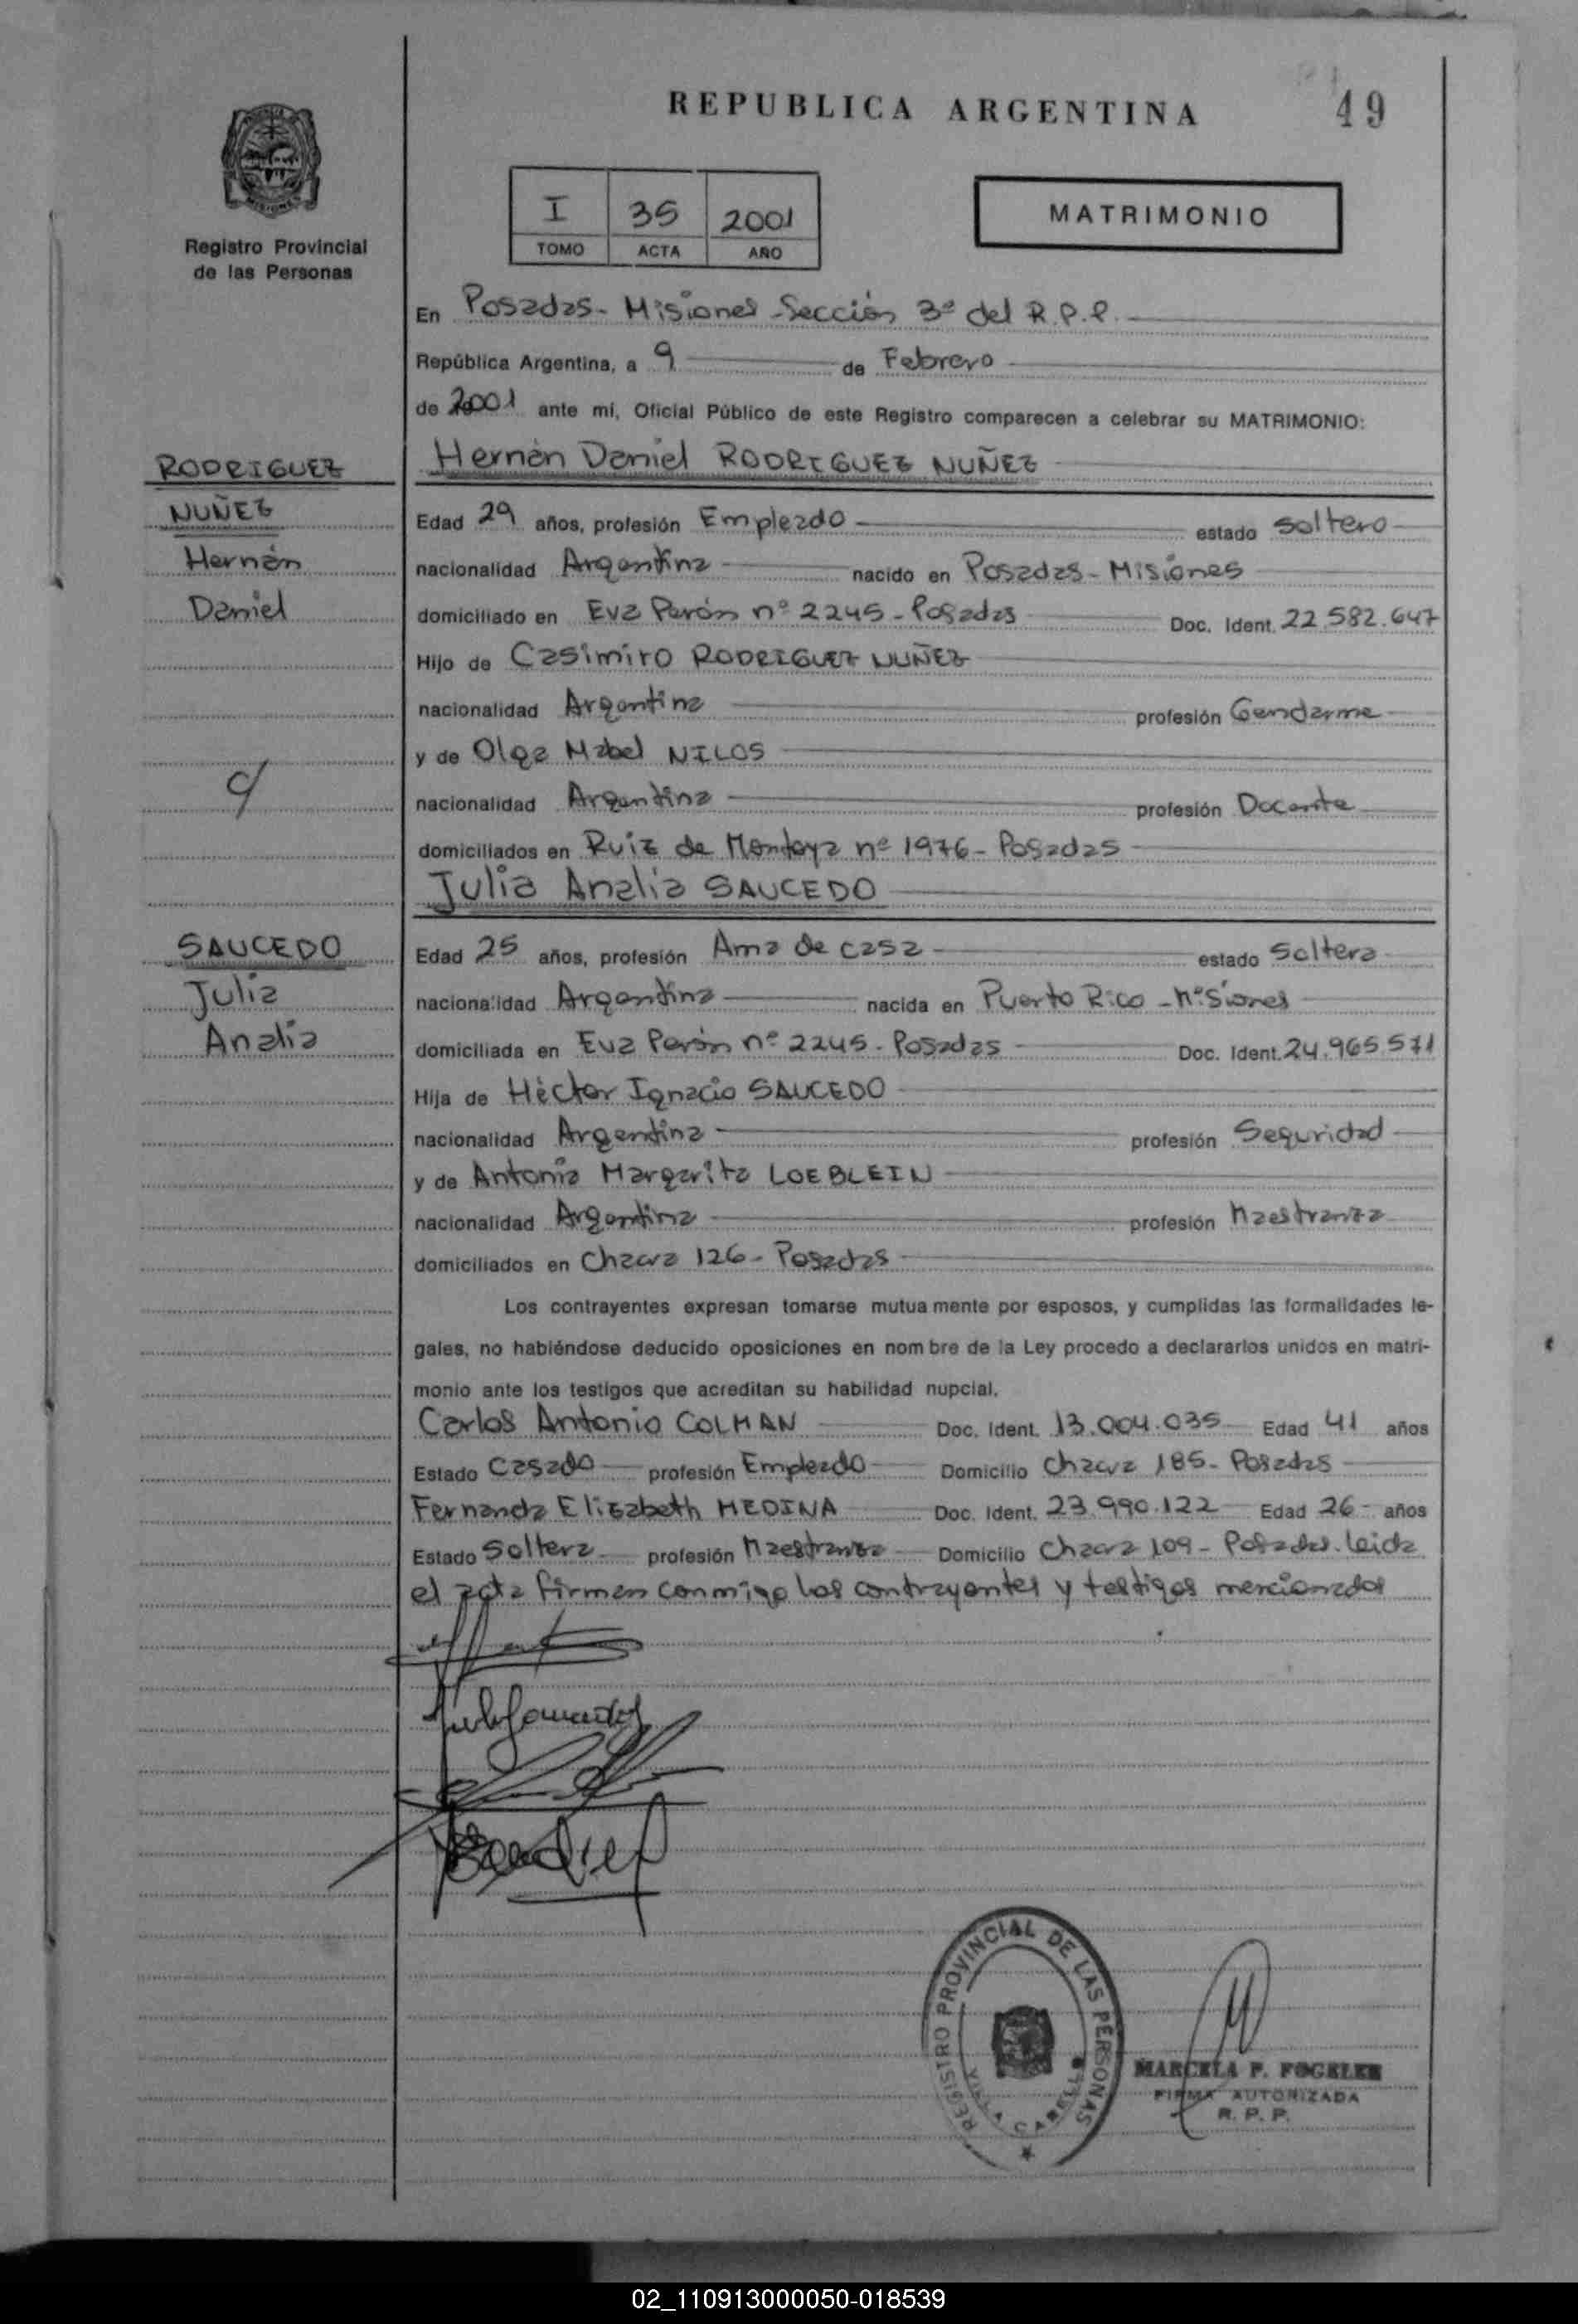 REPUBLICA ARGENTINA
49
I 35 2001
TOMO ACTA AÑO
MATRIMONIO
Registro Provincial
de las Personas
En Posadas - Misiones - Sección 3ª del R.P.P.
República Argentina, a 9 de Febrero
de 2001 ante mí, Oficial Público de este Registro comparecen a celebrar su MATRIMONIO:
RODRIGUEZ
NUÑEZ
Hernán
Daniel
Hernán Daniel RODRIGUEZ NUÑEZ
Edad 29 años, profesión Empleado estado soltero
nacionalidad Argentina nacido en Posadas - Misiones
domiciliado en Eva Perón nº 2245 - Posadas Doc. Ident. 22.582.647
Hijo de Casimiro RODRIGUEZ NUÑEZ
nacionalidad Argentina profesión Gendarme
y de Olga Mabel NILOS
nacionalidad Argentina profesión Docente
domiciliados en Ruiz de Montoya nº 1976 - Posadas
Julia Analía SAUCEDO
SAUCEDO
Julia
Analía
Edad 25 años, profesión Ama de casa estado Soltera
nacionalidad Argentina nacida en Puerto Rico - Misiones
domiciliada en Eva Perón nº 2245 - Posadas Doc. Ident. 24.965.571
Hija de Héctor Ignacio SAUCEDO
nacionalidad Argentina profesión Seguridad
y de Antonia Margarita LOEBLEIN
nacionalidad Argentina profesión Maestranza
domiciliados en Chacra 126 - Posadas
Los contrayentes expresan tomarse mutuamente por esposos, y cumplidas las formalidades le-
gales, no habiéndose deducido oposiciones en nombre de la Ley procedo a declararlos unidos en matri-
monio ante los testigos que acreditan su habilidad nupcial.
Carlos Antonio COLMAN Doc. Ident. 13.004.035 Edad 41 años
Estado Casado profesión Empleado Domicilio Chacra 185 - Posadas
Fernanda Elizabeth MEDINA Doc. Ident. 23.990.122 Edad 26 años
Estado Soltera profesión Maestranza Domicilio Chacra 109 - Posadas. Leída
el acta firman conmigo los contrayentes y testigos mencionados
REGISTRO PROVINCIAL DE LAS PERSONAS
VILLA CABELLO
MARCELA P. FOGELER
FIRMA AUTORIZADA
R. P. P.
02_110913000050-018539